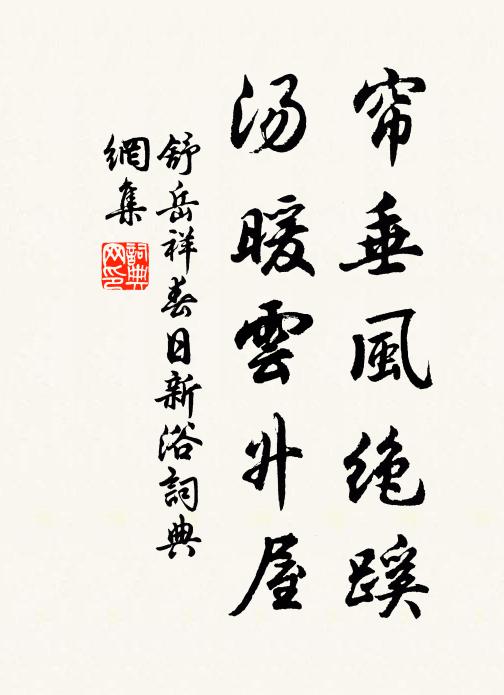 帘垂風絶蹊
汤暖雲升屋
舒岳祥春日新浴詞典
網集
詞典网印